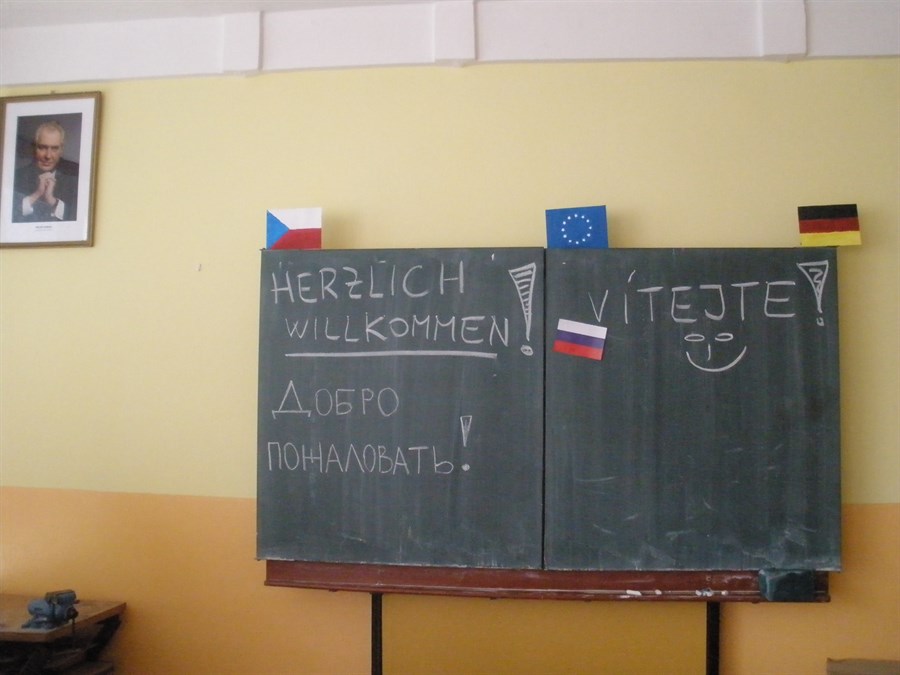 HERZLICH
WILLKOMMEN!
ДОБРО
ПОЖАЛОВАТЬ!
VÍTEJTE!